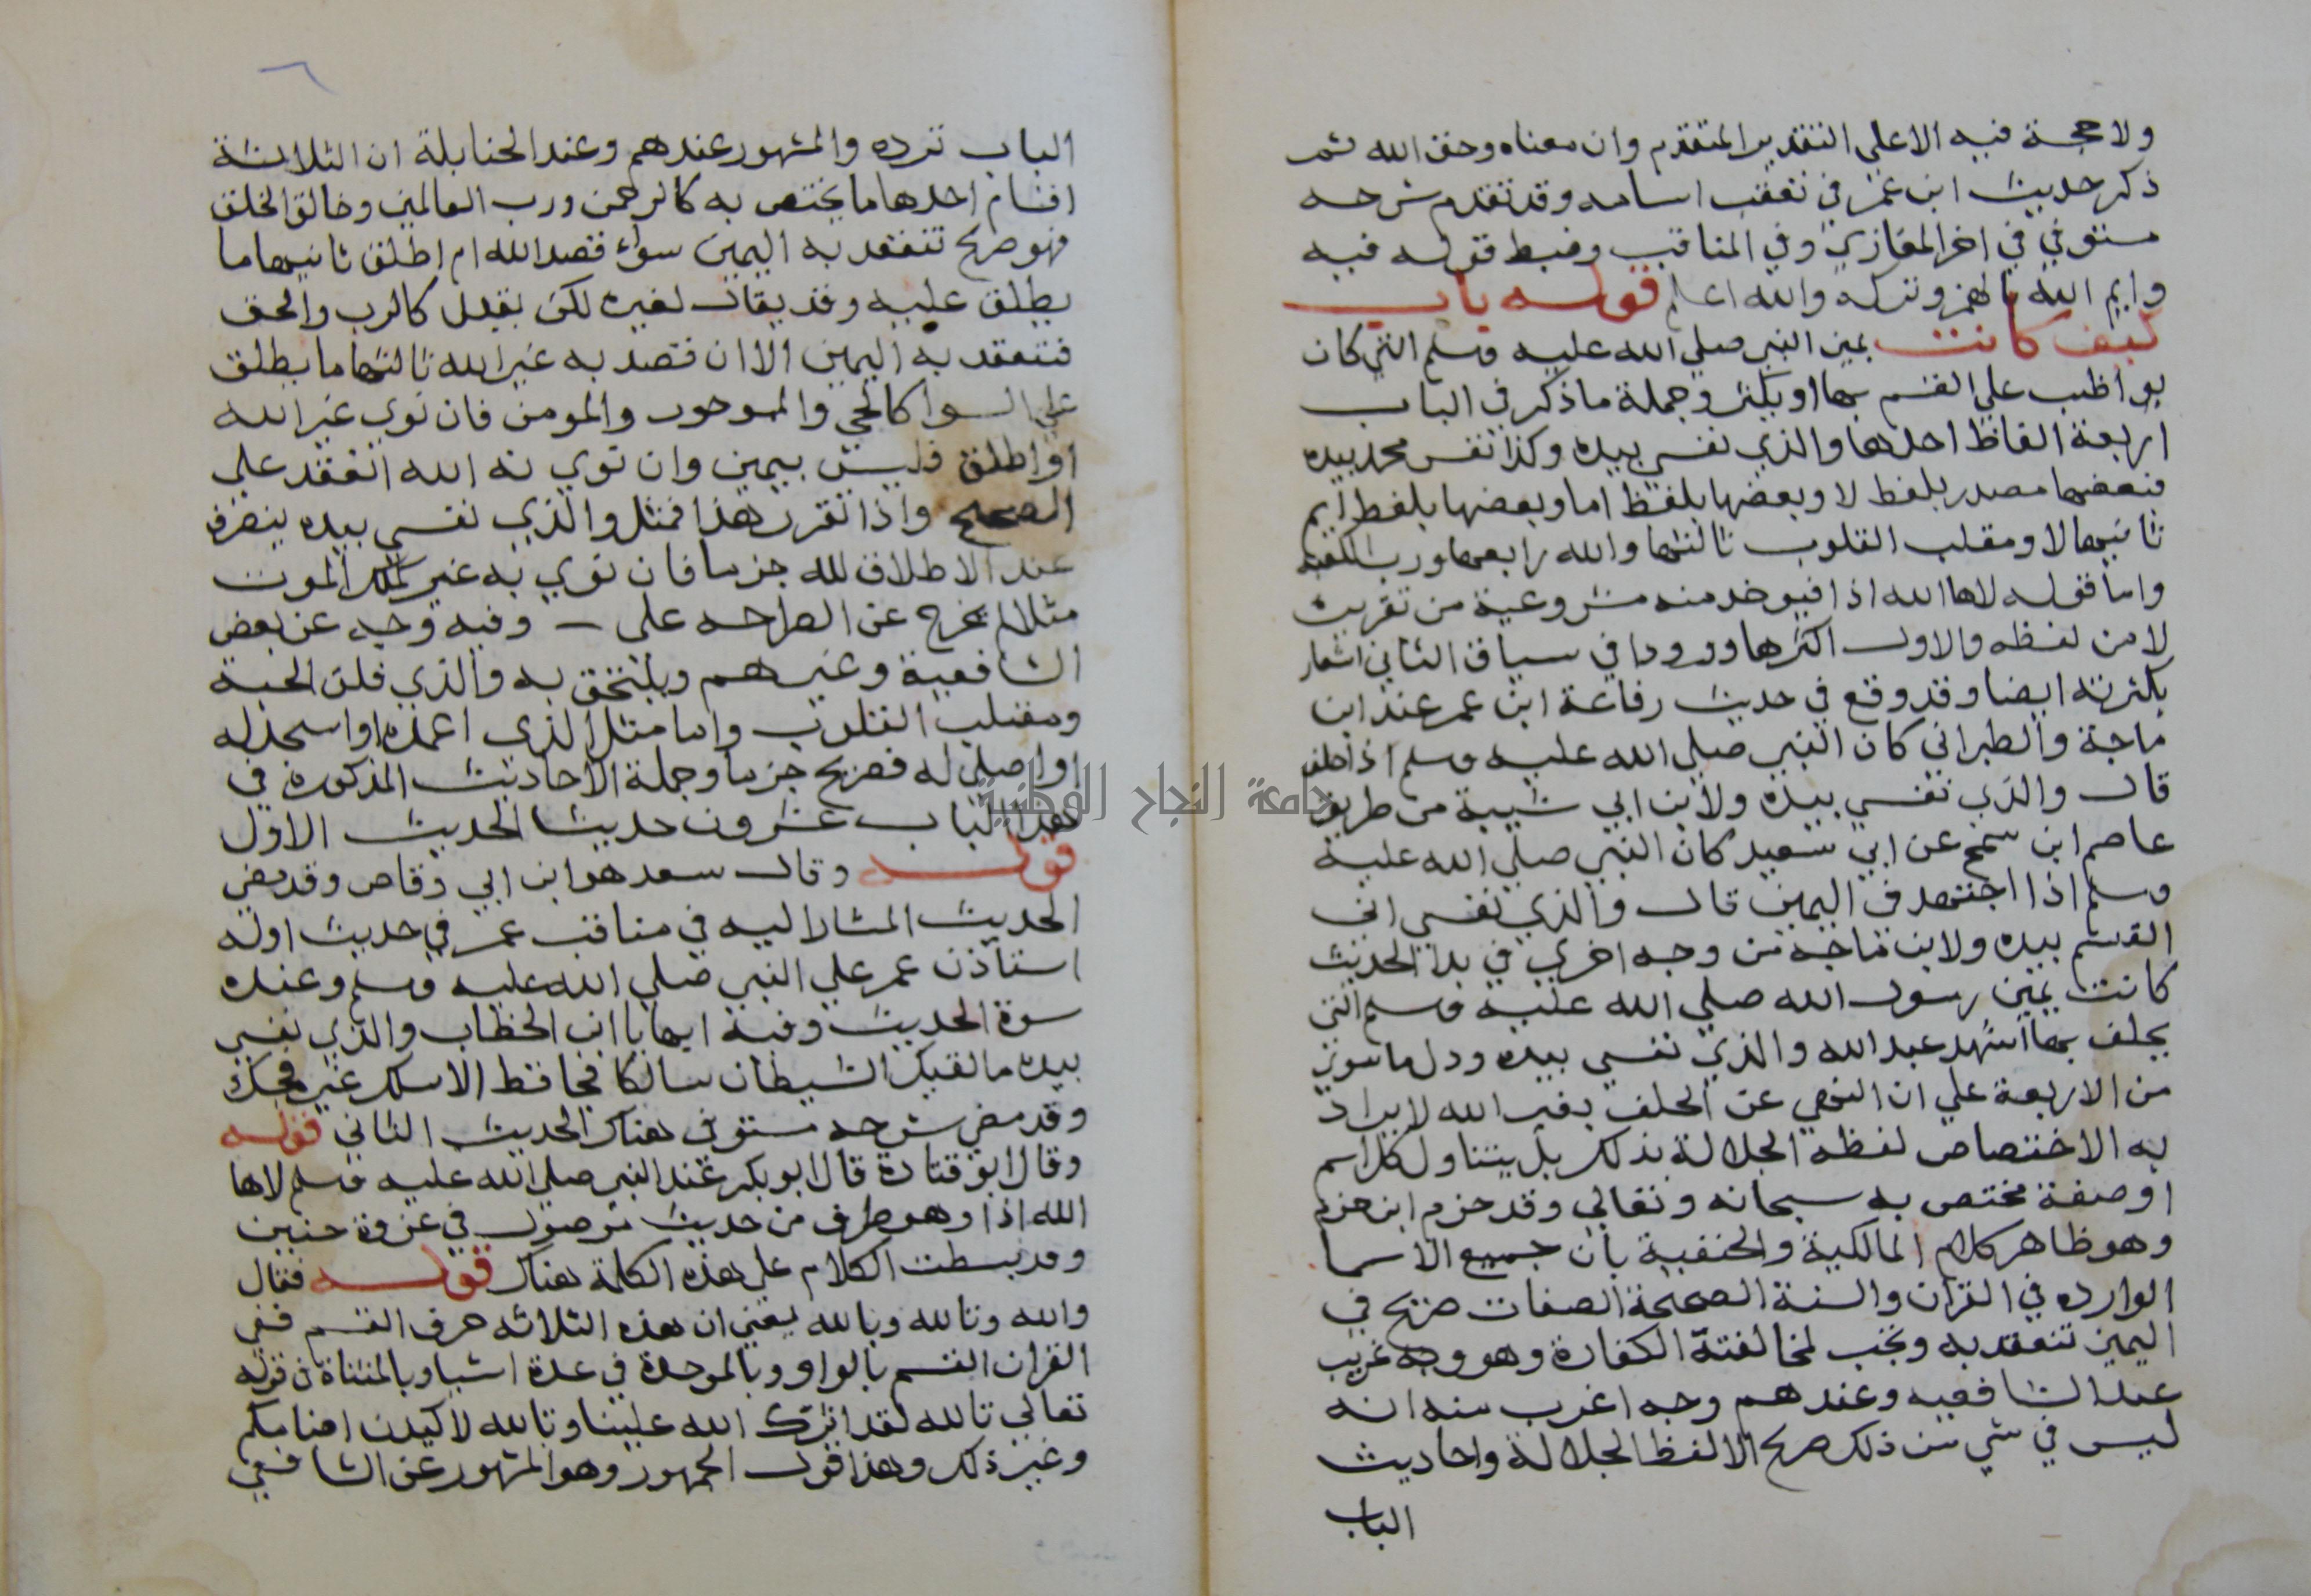 ولا حجة فيه الا علي التقدير المتقدم وان معناه وحق الله ثم
ذكر حديث ابن عمر في تعقب اسامه وقد تقدم شرحه
مستوفي في اخر المغازي وفي المناقب وضبط قوله فيه
وايم الله بالهمز وتركه والله اعلم قوله باب
كيف كانت يمين النبي صلي الله عليه وسلم التي كان
يواظب علي القسم بها او يكثر وجملة ما ذكر في الباب
اربعة الفاظ احدها والذي نفسي بيده وكذا نفس محمد بيده
فبعضها مصدر بلفظ لا وبعضها بلفظ اما وبعضها بلفظ ايم
ثانيها لا ومقلب القلوب ثالثها والله رابعها ورب الكعبه
واما قوله لاها الله اذا فيوخد منه مشروعية من تقريره
لا من لفظه والاول اكثرها ورودا في سياق الثاني اشعار
بكثرته ايضا وقد وقع في حديث رفاعة ابن عمر عند ابن
ماجة والطبراني كان النبي صلي الله عليه وسلم اذا حلف
قال والذي نفسي بيده ولابن ابي شيبة من طريق
عاصم ابن سمخ عن ابي سعيد كان النبي صلي الله عليه
وسلم اذا اجتهد في اليمين قال والذي نفسي ابي
القسم بيده ولابن ماجه من وجه اخري في بدا الحديث
كانت يمين رسول الله صلي الله عليه وسلم التي
يحلف بها اشهد عبد الله والذي نفسي بيده ودل ما سوي
من الاربعة علي ان النهي عن الحلف بغير الله لا يراد
به الاختصاص لفظه الجلالة بذلك بل يتناول كل اسم
او صفة مختص به سبحانه وتعالي وقد حزم ابن حزم
وهو ظاهر كلام المالكية والحنفية بان جميع الاسما
الوارده في القران والسنة الصحيحة الصفات صريح في
اليمين تنعقد به وتجب لمخالفتة الكفارة وهو وجه غريب
عند الشافعيه وعندهم وجه اغرب منه انه
ليس في شي من ذلك صريح الا لفظ الجلالة واحاديث
الباب
الباب ترده والمشهور عندهم وعند الحنابلة ان الثلاثة
اقسام احدها ما يختص به كالرحمن ورب العالمين وخالق الخلق
فهو صريح تنعقد به اليمين سواء قصد الله ام اطلق ثانيها ما
يطلق عليه وقد يقال لغيره لكن بقيد كالرب والحق
فتنعقد به اليمين الا ان قصد به غير الله ثالثها ما يطلق
علي السوا كالحي والموجود والمومن فان نوي غير الله
او اطلق فليس بيمين وان نوي به الله انعقد علي
الصحيح واذا تقرر هذا فمثل والذي نفسي بيده ينصرف
عند الاطلاق لله جزما فان نوي به غير كملك الموت
مثلا لم يخرج عن الصراحه علي وفيه وجه عن بعض
الشافعية وغيرهم ويلتحق به والذي فلق الحبة
ومقلب القلوب واما مثل الذي اعبده او اسجد له
او اصلي له فصريح جزما وجملة الاحاديث المذكورة في
هذا الباب عشرون حديثا الحديث الاول
قوله وقال سعد هو ابن ابي وقاص وقد مضي
الحديث المشار اليه في مناقب عمر في حديث اوله
استاذن عمر علي النبي صلي الله عليه وسلم وعنده
سوة الحديث وفيه ايها يا ابن الخطاب والذي نفسي
بيده ما لقيك الشيطان سالكا فجا قط الا سلك غير فجك
وقد مضي شرحه مستوفي هناك الحديث الثاني قوله
وقال ابو قتادة قال ابو بكر عند النبي صلي الله عليه وسلم لاها
الله اذا وهو طرف من حديث موصول في غزوة حنين
وقد بسطت الكلام علي هذه الكلمة هناك قوله فقال
والله وتالله وبالله يعني ان هذه الثلاثه حرف القسم ففي
القران القسم بالواو وبالموحدة في عدة اشيا وبالمثناة في قوله
تعالي تالله لقد اثرك الله علينا وتالله لاكيدن اصنامكم
وغير ذلك وهذا قول الجمهور وهو المشهور عن الشافعي
جامعة النجاح الوطنية